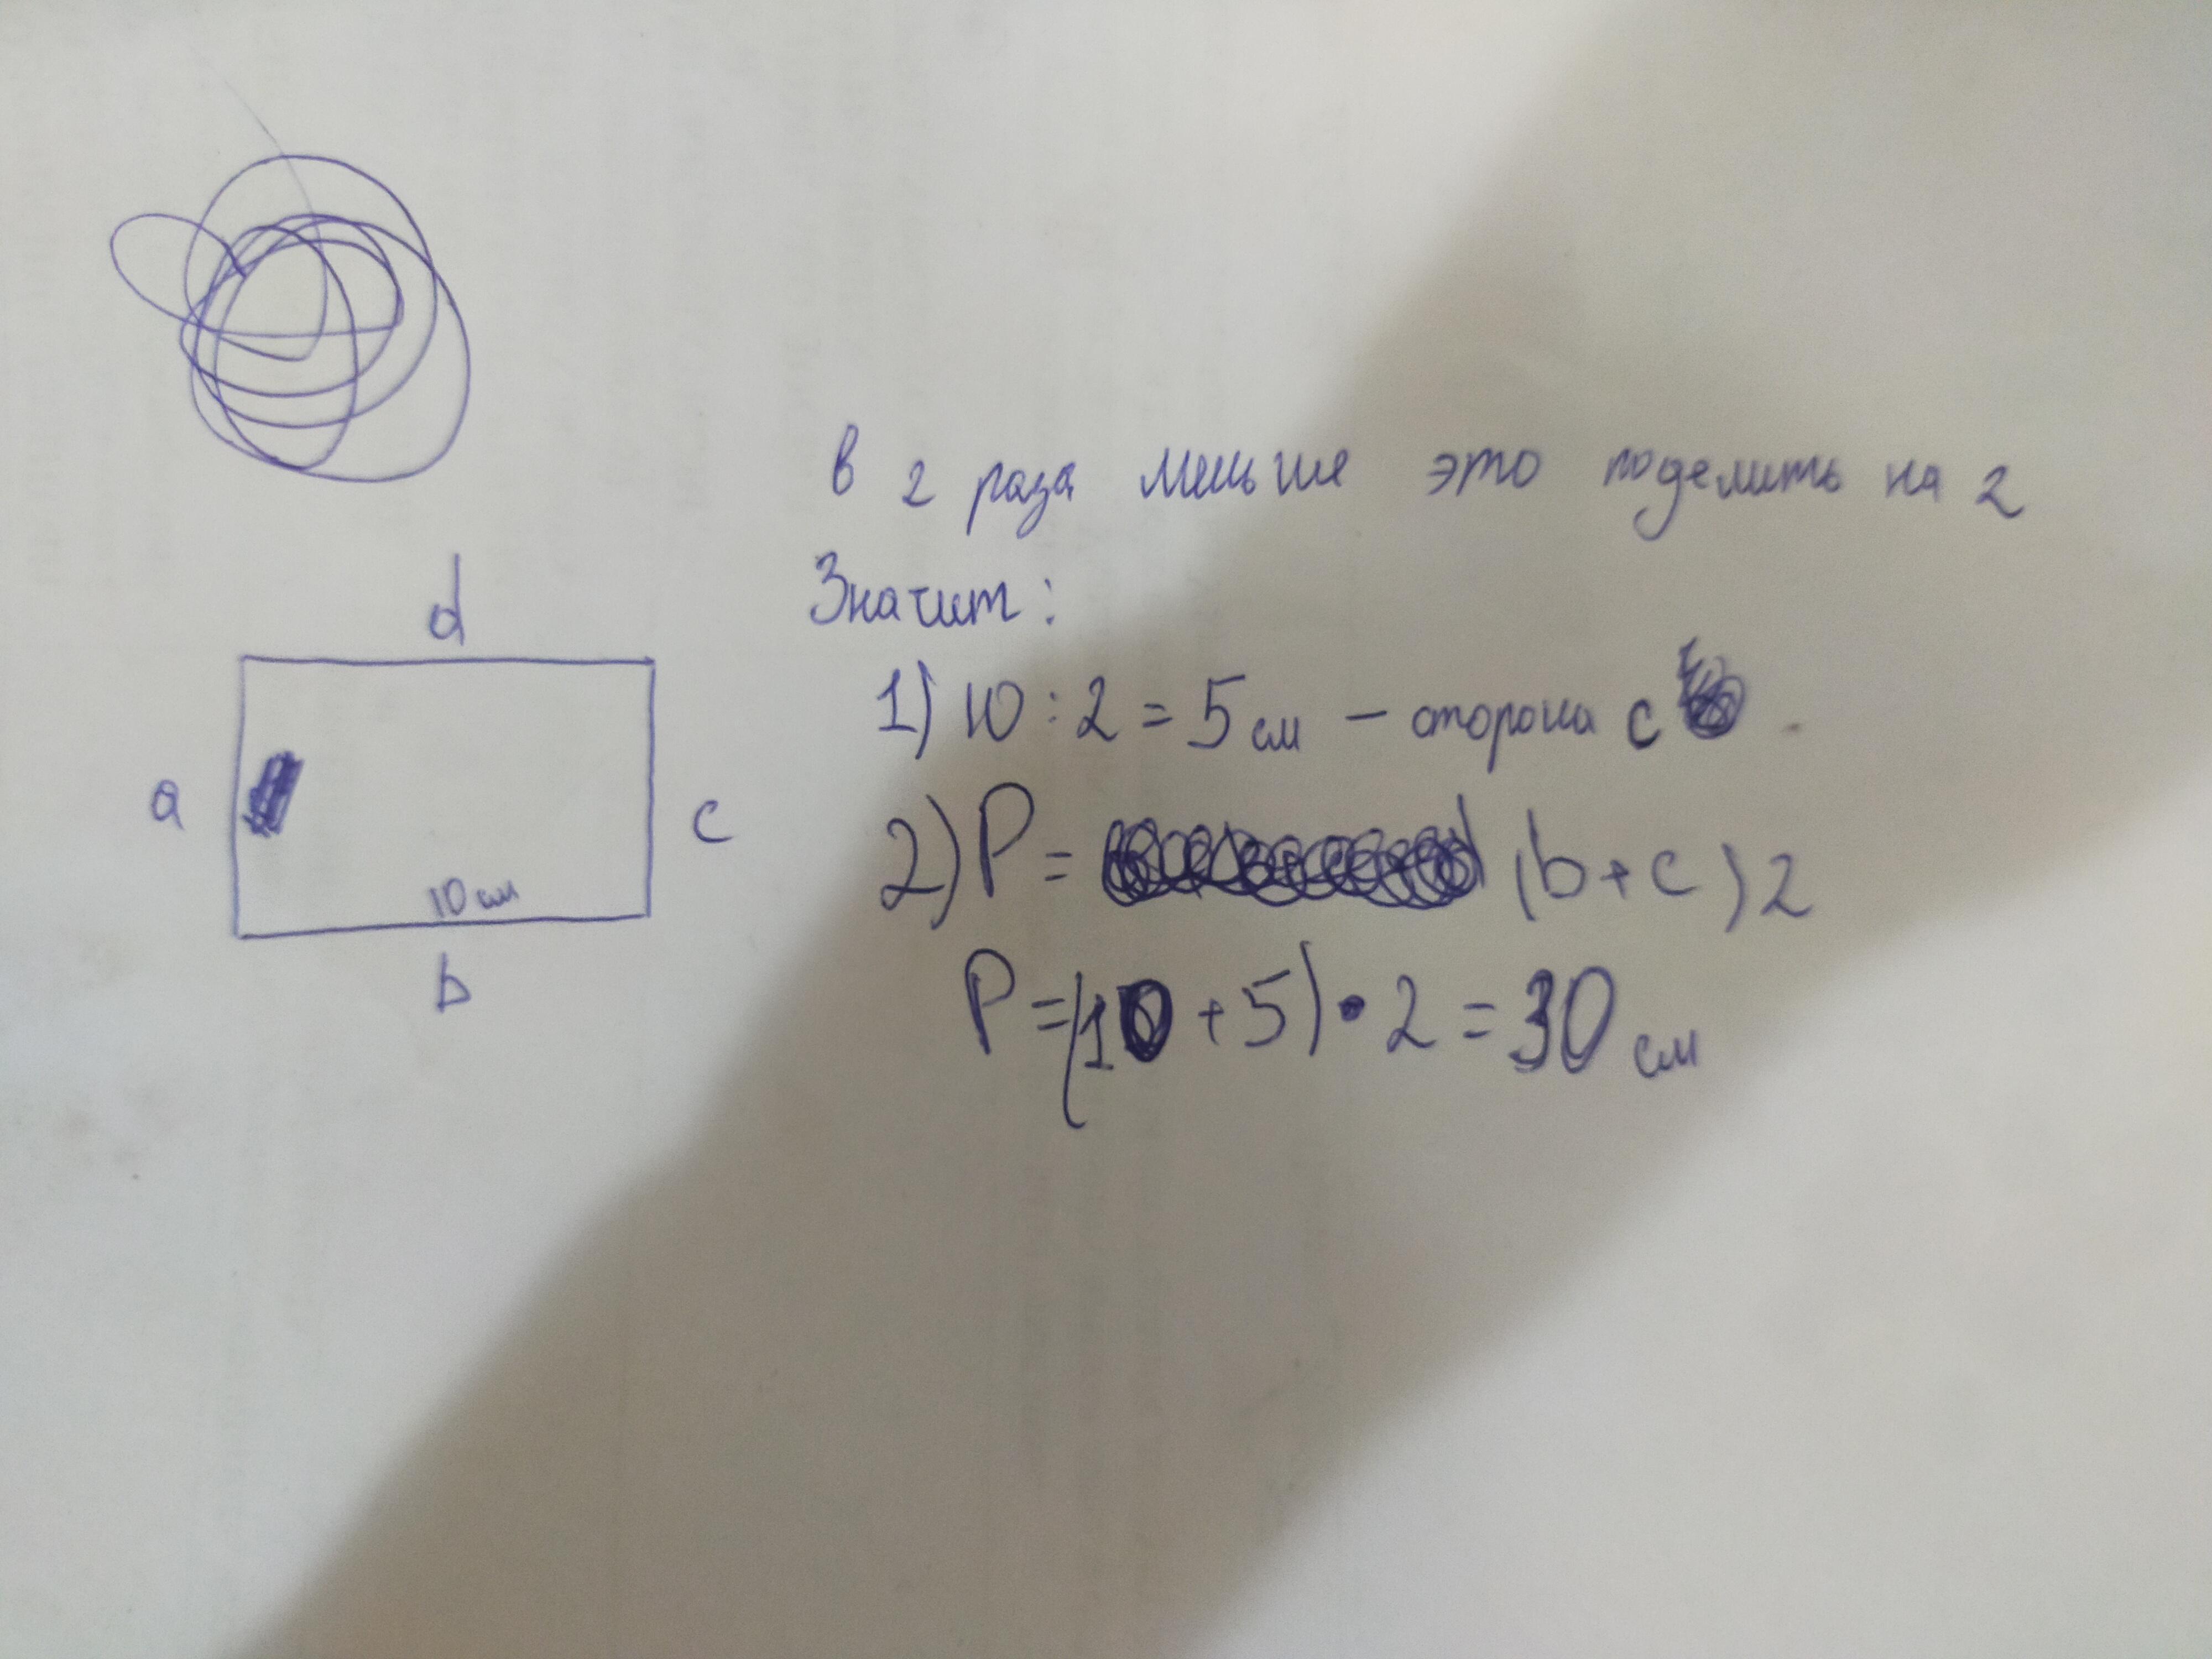 в 2 раза меньше это поделить на 2
Значит:
d
1) 10 : 2 = 5 см - сторона c
a
c
2) P = (b + c) 2
10 см
b
P = (10 + 5) • 2 = 30 см